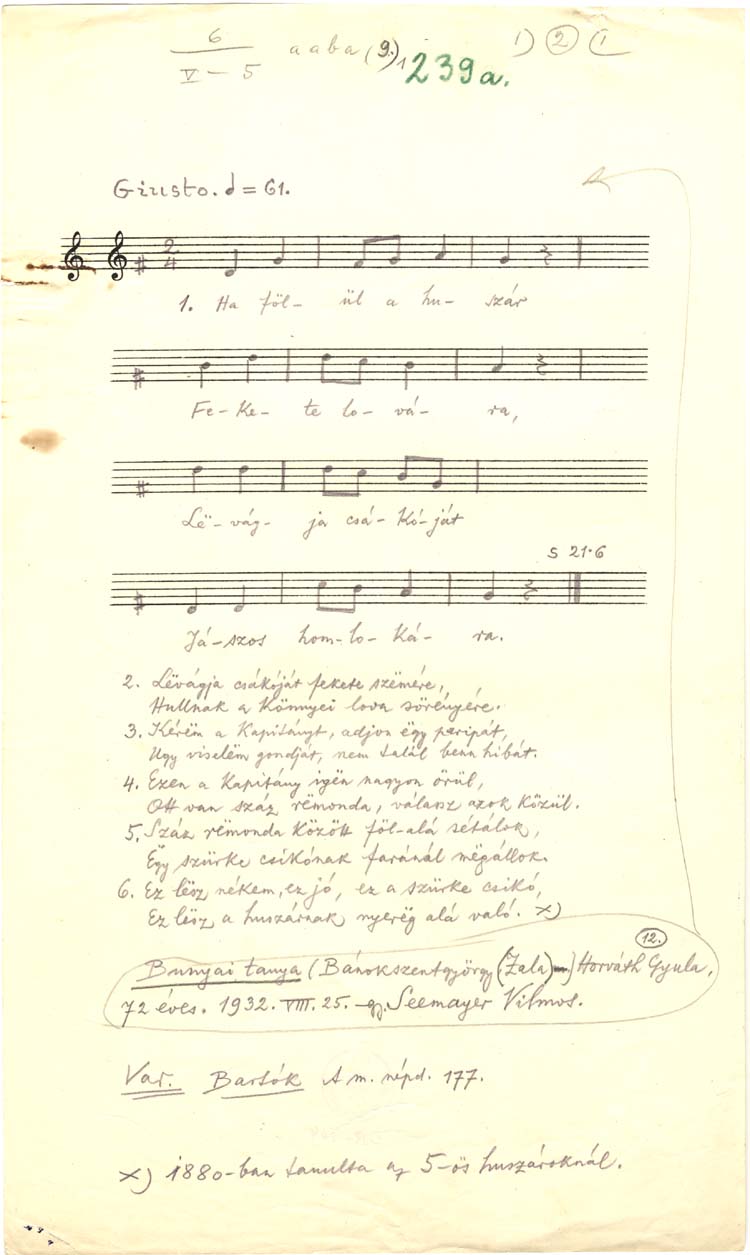 6
V – 5
a a b a (9.)1
239a.
1) 2 (1
Giusto. = 61.
2
4
1. Ha föl- ül a hu- szár
Fe-ke- te lo- vá- ra,
Lë- vág- ja csá- kó- ját
S 21·6
Já-szos hom-lo- ká- ra.
2. Lëvágja csákóját fekete szëmére,
Hullnak a könnyei lova sörényére.
3. Kérëm a kapitányt, adjon ëgy paripát,
Ugy viselëm gondját, nem talál benn hibát.
4. Ezen a kapitány igën nagyon örül,
Ott van száz rëmonda, válassz azok közül.
5. Száz rëmonda között föl-alá sétálok,
Ëgy szürke csikónak faránál mëgállok.
6. Ez lësz nékem, ez jó, ez a szürke csikó,
Ez lësz a huszárnak nyerëg alá való. x)
12.
Bunyai tanya (Bánokszentgyörgy (Zala) Horváth Gyula,
72 éves. 1932. VIII. 25. gy. Seemayer Vilmos.
Var. Bartók A m. népd. 177.
x) 1880-ban tanulta az 5-ös huszároknál.